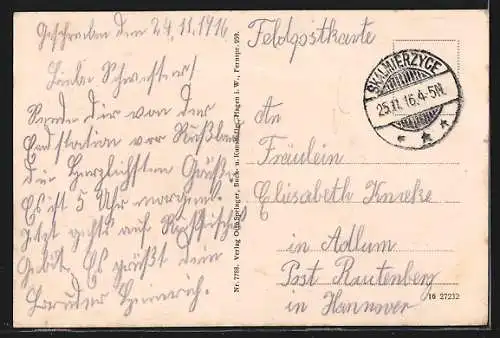 Geschrieben den 24.11.1916
Liebe Schwester!
Sende Dir von der
Endstation vor Rußland
die herzlichsten Grüße.
Es ist 5 Uhr morgens.
Jetzt gehts auf Russisches
Gebiet. Es grüßt dein
Bruder Heinrich.
Nr. 7788. Verlag Otto Springer, Buch- u. Kunsthdlg., Hagen i. W., Fernspr. 999.
Feldpostkarte
SKALMIERZYCE
25.11.16.4-5N.
An
Fräulein
Elisabeth Knieke
in Adlum
Post Rautenberg
in Hannover
16 27232